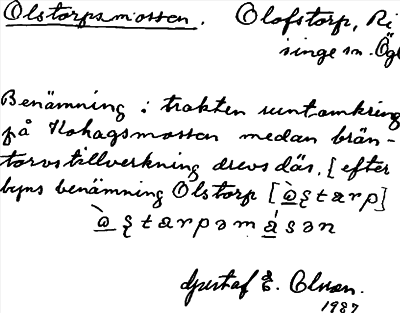 Olstorpsmossen. Olofstorp, Ri
singe sn. Ögl
Benämning i trakten runtomkring
på Kohagsmossen medan brän-
torvstillverkning drevs där, [efter
byns benämning Olstorp [
Gustaf E. Olsson.
1987